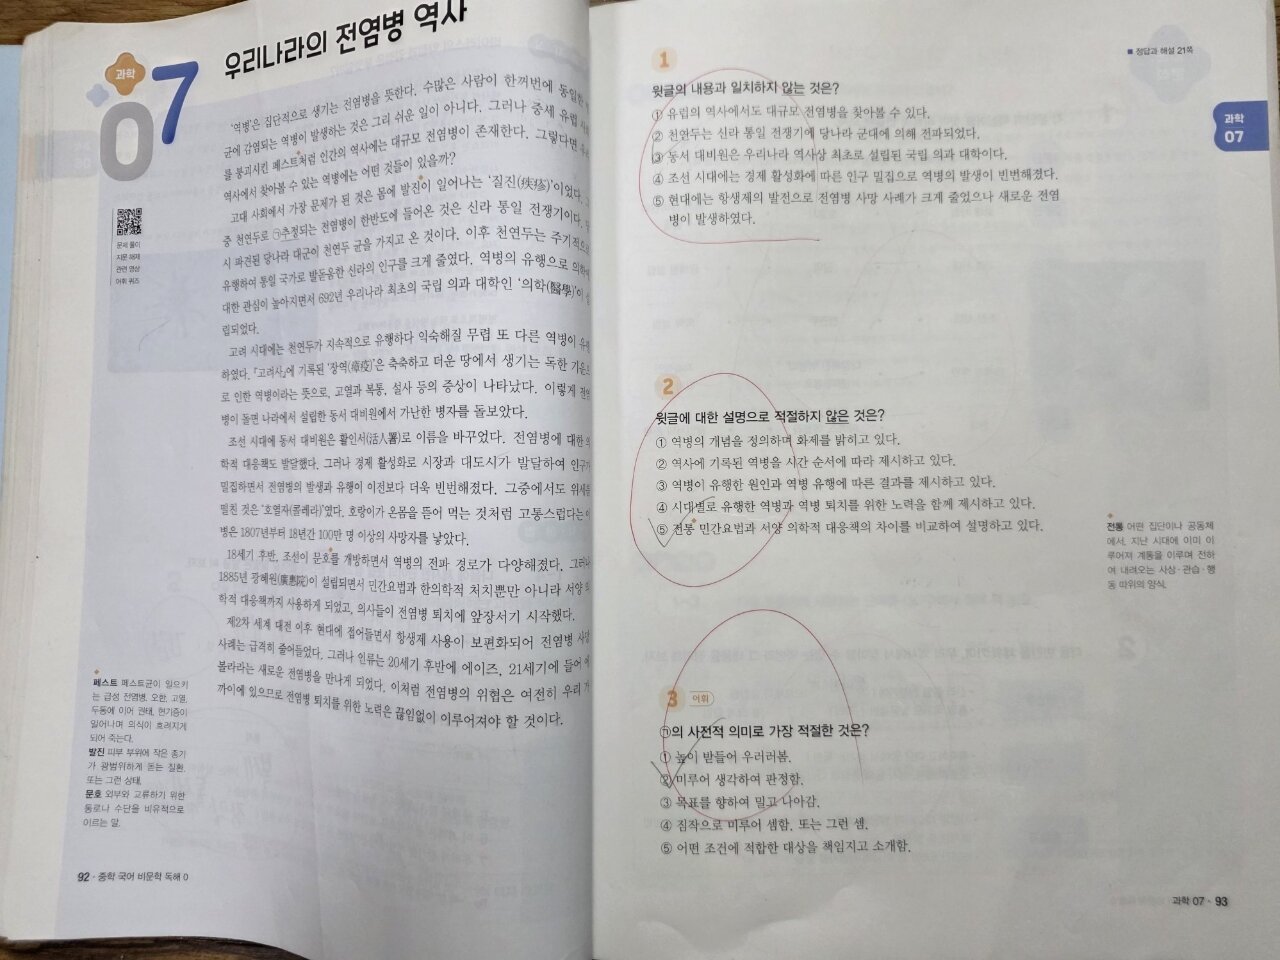 우리나라의 전염병 역사
과학
07
문제 풀이
지문 해제
관련 영상
어휘 퀴즈
'역병'은 집단적으로 생기는 전염병을 뜻한다. 수많은 사람이 한꺼번에 동일한
균에 감염되는 역병이 발생하는 것은 그리 쉬운 일이 아니다. 그러나 중세 유럽
를 붕괴시킨 페스트처럼 인간의 역사에는 대규모 전염병이 존재한다. 그렇다면
역사에서 찾아볼 수 있는 역병에는 어떤 것들이 있을까?
고대 사회에서 가장 문제가 된 것은 몸에 발진이 일어나는 '질진(疾疹)'이었다.
중 천연두로 ㉠추정되는 전염병이 한반도에 들어온 것은 신라 통일 전쟁기이다.
시 파견된 당나라 대군이 천연두 균을 가지고 온 것이다. 이후 천연두는 주기적으
유행하여 통일 국가로 발돋움한 신라의 인구를 크게 줄였다. 역병의 유행으로 의학
대한 관심이 높아지면서 692년 우리나라 최초의 국립 의과 대학인 '의학(醫學)'이
립되었다.
고려 시대에는 천연두가 지속적으로 유행하다 익숙해질 무렵 또 다른 역병이
하였다. 『고려사』에 기록된 '장역(瘴疫)'은 축축하고 더운 땅에서 생기는 독한 기운
로 인한 역병이라는 뜻으로, 고열과 복통, 설사 등의 증상이 나타났다. 이렇게 전염
병이 돌면 나라에서 설립한 동서 대비원에서 가난한 병자를 돌보았다.
조선 시대에 동서 대비원은 활인서(活人署)로 이름을 바꾸었다. 전염병에 대한
학적 대응책도 발달했다. 그러나 경제 활성화로 시장과 대도시가 발달하여 인구가
밀집하면서 전염병의 발생과 유행이 이전보다 더욱 빈번해졌다. 그중에서도 위세를
떨친 것은 '호열자(콜레라)'였다. 호랑이가 온몸을 뜯어 먹는 것처럼 고통스럽다는 이
병은 1807년부터 18년간 100만 명 이상의 사망자를 낳았다.
18세기 후반, 조선이 문호를 개방하면서 역병의 전파 경로가 다양해졌다. 그러나
1885년 광혜원(廣惠院)이 설립되면서 민간요법과 한의학적 처치뿐만 아니라 서양 의
학적 대응책까지 사용하게 되었고, 의사들이 전염병 퇴치에 앞장서기 시작했다.
제2차 세계 대전 이후 현대에 접어들면서 항생제 사용이 보편화되어 전염병 사망
사례는 급격히 줄어들었다. 그러나 인류는 20세기 후반에 에이즈, 21세기에 들어 에
볼라라는 새로운 전염병을 만나게 되었다. 이처럼 전염병의 위협은 여전히 우리 가
까이에 있으므로 전염병 퇴치를 위한 노력은 끊임없이 이루어져야 할 것이다.
페스트 페스트균이 일으키
는 급성 전염병. 오한, 고열,
두통에 이어 권태, 현기증이
일어나며 의식이 흐려지게
되어 죽는다.
발진 피부 부위에 작은 종기
가 광범위하게 돋는 질환.
또는 그런 상태.
문호 외부와 교류하기 위한
통로나 수단을 비유적으로
이르는 말.
92 · 중학 국어 비문학 독해 0
■ 정답과 해설 21쪽
과학
07
1
윗글의 내용과 일치하지 않는 것은?
① 유럽의 역사에서도 대규모 전염병을 찾아볼 수 있다.
② 천연두는 신라 통일 전쟁기에 당나라 군대에 의해 전파되었다.
③ 동서 대비원은 우리나라 역사상 최초로 설립된 국립 의과 대학이다.
④ 조선 시대에는 경제 활성화에 따른 인구 밀집으로 역병의 발생이 빈번해졌다.
⑤ 현대에는 항생제의 발전으로 전염병 사망 사례가 크게 줄었으나 새로운 전염
병이 발생하였다.
2
윗글에 대한 설명으로 적절하지 않은 것은?
① 역병의 개념을 정의하며 화제를 밝히고 있다.
② 역사에 기록된 역병을 시간 순서에 따라 제시하고 있다.
③ 역병이 유행한 원인과 역병 유행에 따른 결과를 제시하고 있다.
④ 시대별로 유행한 역병과 역병 퇴치를 위한 노력을 함께 제시하고 있다.
⑤ 전통 민간요법과 서양 의학적 대응책의 차이를 비교하여 설명하고 있다.
전통 어떤 집단이나 공동체
에서, 지난 시대에 이미 이
루어져 계통을 이루며 전하
여 내려오는 사상·관습·행
동 따위의 양식.
3 어휘
㉠의 사전적 의미로 가장 적절한 것은?
① 높이 받들어 우러러봄.
② 미루어 생각하여 판정함.
③ 목표를 향하여 밀고 나아감.
④ 짐작으로 미루어 셈함. 또는 그런 셈.
⑤ 어떤 조건에 적합한 대상을 책임지고 소개함.
과학 07 · 93